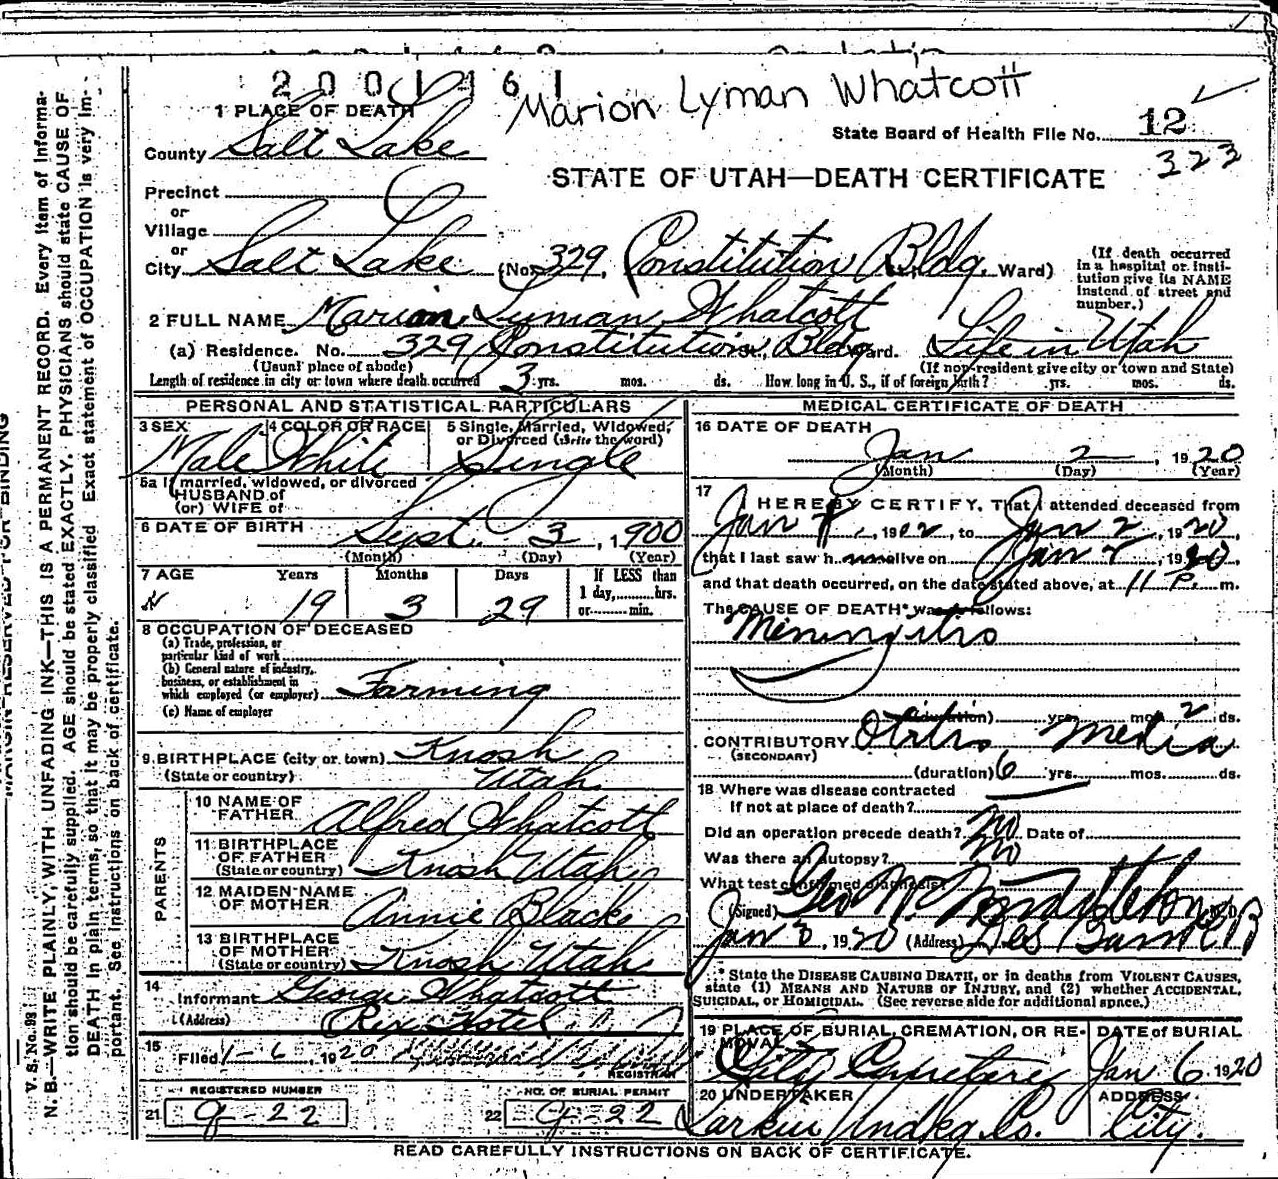 2001161
Marion Lyman Whatcott
1 PLACE OF DEATH
State Board of Health File No. 12
323
County Salt Lake
STATE OF UTAH—DEATH CERTIFICATE
Precinct
or
Village
or
City Salt Lake (No. 329, Constitution Bldg. Ward)
(If death occurred in a hospital or insti-
tution give its NAME
instead of street and
number.)
2 FULL NAME Marion Lyman Whatcott
(a) Residence. No. 329 Constitution St., Bldg Ward. Life in Utah
(Usual place of abode) (If non-resident give city or town and State)
Length of residence in city or town where death occurred 3 yrs. mos. ds. How long in U. S., if of foreign birth? yrs. mos. ds.
PERSONAL AND STATISTICAL PARTICULARS
3 SEX 4 COLOR OR RACE 5 Single, Married, Widowed,
or Divorced (Write the word)
Male White Single
5a If married, widowed, or divorced
HUSBAND of
(or) WIFE of
6 DATE OF BIRTH Sept. 3, 1900
(Month) (Day) (Year)
7 AGE Years Months Days If LESS than
1 day, hrs.
or min.
19 3 29
8 OCCUPATION OF DECEASED
(a) Trade, profession, or
particular kind of work
(b) General nature of industry,
business, or establishment in
which employed (or employer) Farming
(c) Name of employer
9 BIRTHPLACE (city or town) Knosh
(State or country) Utah
PARENTS
10 NAME OF
FATHER Alfred Whatcott
11 BIRTHPLACE
OF FATHER
(State or country) Knosh Utah
12 MAIDEN NAME
OF MOTHER Annie Black
13 BIRTHPLACE
OF MOTHER
(State or country) Knosh Utah
14 Informant George Whatcott
(Address) Rex Hotel
15 Filed 1-6, 1920
REGISTRAR
REGISTERED NUMBER NO. OF BURIAL PERMIT
21 9-22 22 9-22
MEDICAL CERTIFICATE OF DEATH
16 DATE OF DEATH
Jan 2, 1920
(Month) (Day) (Year)
17 I HEREBY CERTIFY, That I attended deceased from
Jan, 1902, to Jan 2, 1920
that I last saw h alive on Jan 2, 1920
and that death occurred, on the date stated above, at 11 P. m.
The CAUSE OF DEATH* was as follows:
Meningitis
(duration) yrs. mos. 2 ds.
CONTRIBUTORY Otitis Media
(SECONDARY)
(duration) 6 yrs. mos. ds.
18 Where was disease contracted
If not at place of death?
Did an operation precede death? No Date of
Was there an autopsy? No
What test confirmed diagnosis?
(Signed) Geo
Jan 3, 1920 (Address) Des
* State the DISEASE CAUSING DEATH, or in deaths from VIOLENT CAUSES,
state (1) MEANS AND NATURE OF INJURY, and (2) whether ACCIDENTAL,
SUICIDAL, or HOMICIDAL. (See reverse side for additional space.)
19 PLACE OF BURIAL, CREMATION, OR RE-
MOVAL DATE of BURIAL
City Cemetery Jan 6 1920
20 UNDERTAKER ADDRESS
Larkin Undkg Co. City.
READ CAREFULLY INSTRUCTIONS ON BACK OF CERTIFICATE.
MARGIN RESERVED FOR BINDING
V. S. No. 98
N. B.—WRITE PLAINLY, WITH UNFADING INK—THIS IS A PERMANENT RECORD. Every item of informa-
tion should be carefully supplied. AGE should be stated EXACTLY. PHYSICIANS should state CAUSE OF
DEATH in plain terms, so that it may be properly classified. Exact statement of OCCUPATION is very im-
portant. See instructions on back of certificate.